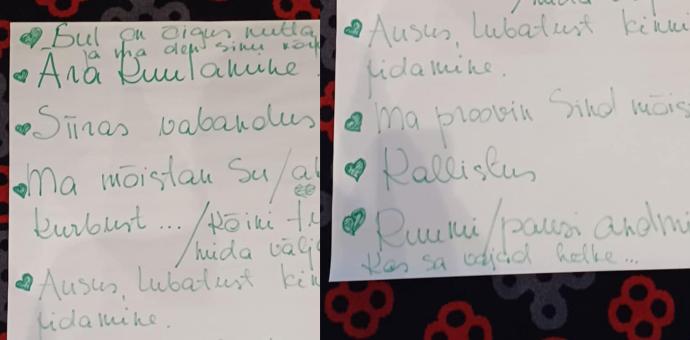 Sul on õigus nutta
ja ma olen sinu
Ära kuulamine
Siiras vabandus
Ma mõistan su/
kurbust.../kõiki
mida välj
Ausus, Lubadust kin
pidamine.
Ausus, Lubadust kinni
pidamine.
Ma proovin Sind mõis
Kallistus
Ruumi/pausi andmi
Kas sa vajad hetke...